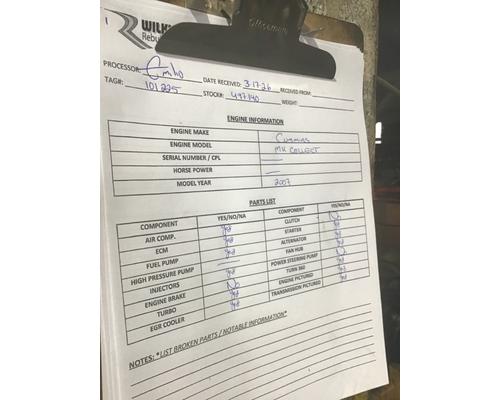 1
WILK
Rebu
Officemate
PROCESSOR: DATE RECEIVED: 3.17.26 RECEIVED FROM:
TAG#: 101225 STOCK#: 497140 WEIGHT:
ENGINE INFORMATION
ENGINE MAKE Cummins
ENGINE MODEL
SERIAL NUMBER / CPL —
HORSE POWER —
MODEL YEAR 2007
PARTS LIST
COMPONENT YES/NO/NA COMPONENT YES/NO/NA
AIR COMP. yes CLUTCH No
ECM yes STARTER yes
FUEL PUMP — ALTERNATOR yes
HIGH PRESSURE PUMP yes FAN HUB No
INJECTORS yes POWER STEERING PUMP yes
ENGINE BRAKE No TURN 360 yes
TURBO yes ENGINE PICTURED yes
EGR COOLER yes TRANSMISSION PICTURED
NOTES: *LIST BROKEN PARTS / NOTABLE INFORMATION*